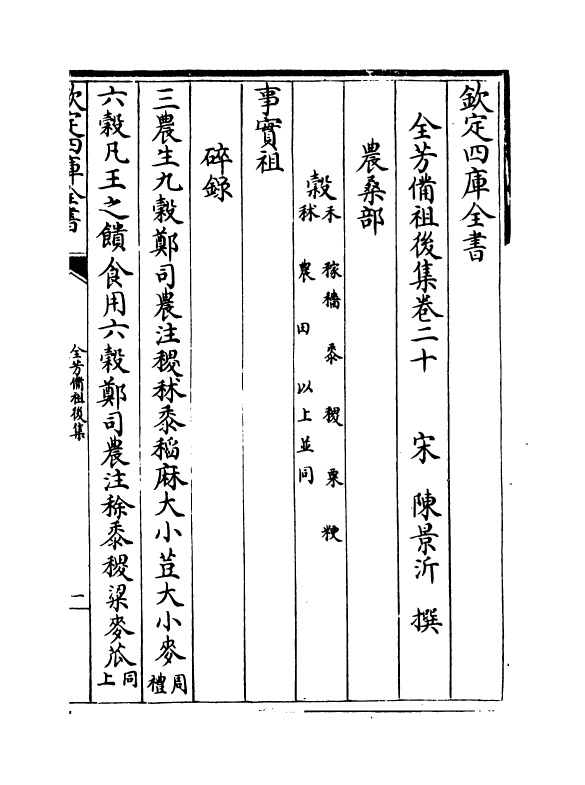 欽定四庫全書
全芳備祖後集卷二十 宋 陳景沂 撰
農桑部
穀 禾 稼穡 黍 稷 粟 粳
秫 農 田 以上並同
事實祖
碎錄
三農生九穀鄭司農注稷秫黍稻麻大小荳大小麥周禮
六穀凡王之饋食用六穀鄭司農注稌黍稷粱麥苽同上
欽定四庫全書
全芳備祖後集
一